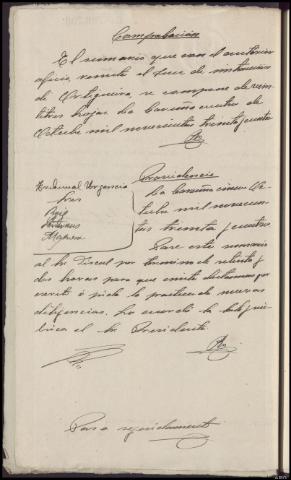 Comprobación
El sumario que con el anterior
oficio remite el Juez de instrucción
de Ortigueira, se compone de vein-
titres hojas. La Coruña cuatro de
Octubre mil novecientos treinta y cuatro
Tribunal Urgencia
Sres
Providencia
La Coruña cinco Oc-
tubre mil novecien-
tos treinta y cuatro.
Pase este sumario
al Sr Fiscal por término de setenta y
dos horas para que emita dictamen por
escrito o pida la práctica de nuevas
diligencias. Lo acordó la Sala y ru-
brica el Sr Presidente.
Pasa seguidamente